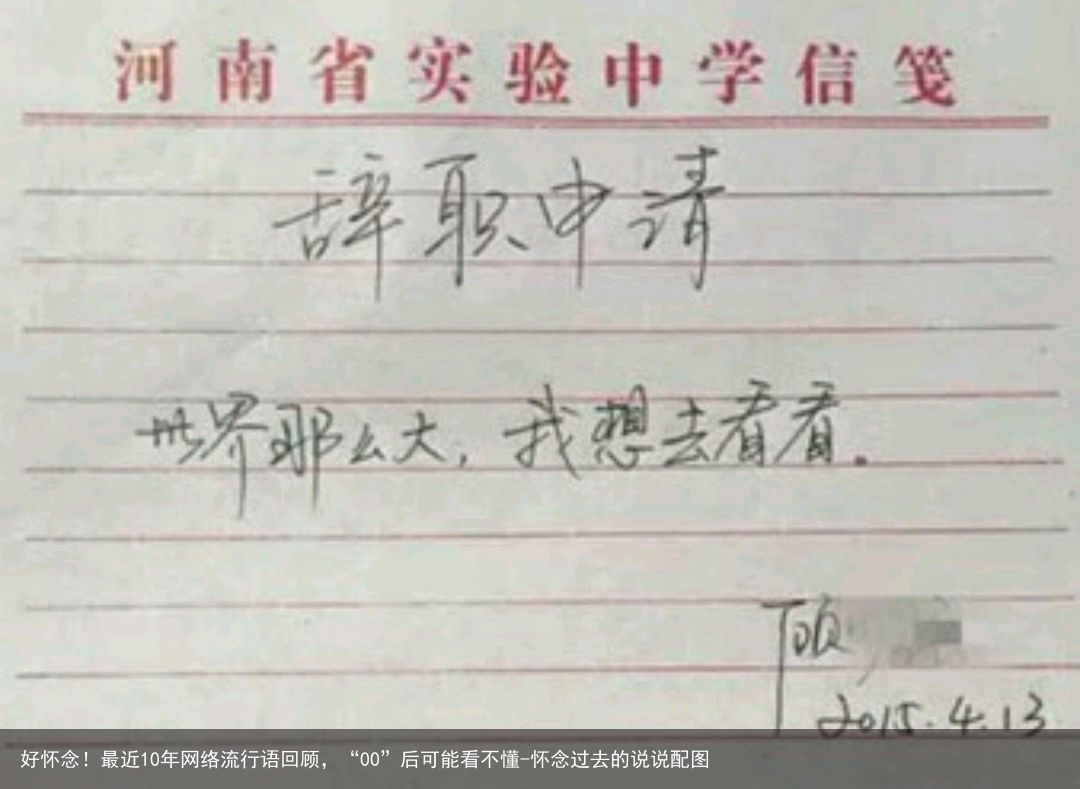 河南省实验中学信笺
辞职申请
世界那么大，我想去看看。
顾
2015.4.13
好怀念！最近10年网络流行语回顾，“00”后可能看不懂-怀念过去的说说配图